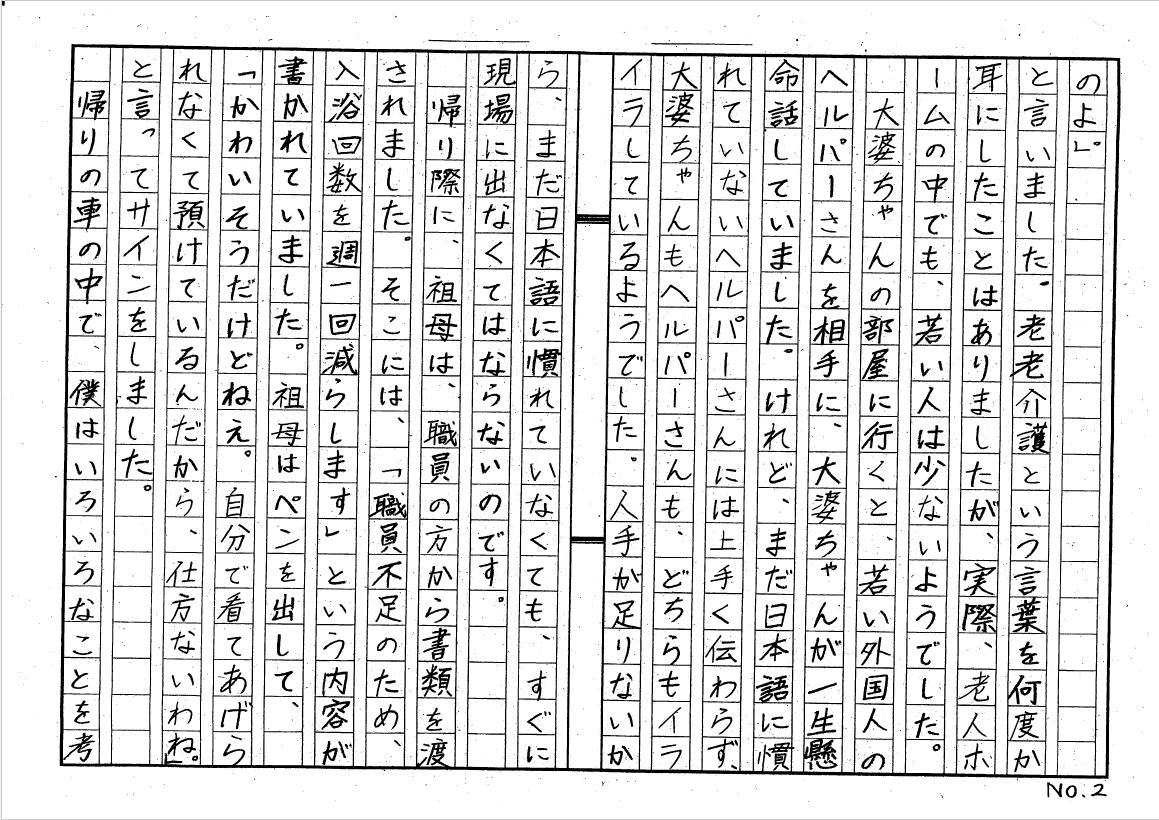 のよ」。
と言いました。老老介護という言葉を何度か
耳にしたことはありましたが、実際、老人ホ
ームの中でも、若い人は少ないようでした。
大婆ちゃんの部屋に行くと、若い外国人の
ヘルパーさんを相手に、大婆ちゃんが一生懸
命話していました。けれど、まだ日本語に慣
れていないヘルパーさんには上手く伝わらず、
大婆ちゃんもヘルパーさんも、どちらもイラ
イラしているようでした。人手が足りないか
ら、まだ日本語に慣れていなくても、すぐに
現場に出なくてはならないのです。
帰り際に、祖母は、職員の方から書類を渡
されました。そこには、「職員不足のため、
入浴回数を週一回減らします」という内容が
書かれていました。祖母はペンを出して、
「かわいそうだけどねえ。自分で看てあげら
れなくて預けているんだから、仕方ないわね」。
と言ってサインをしました。
帰りの車の中で、僕はいろいろなことを考
No.2